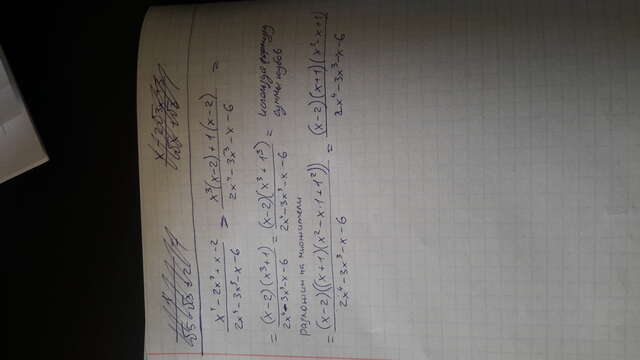 x⁴ - 2x³ + x - 2 / 2x⁴ - 3x³ - x - 6 = x³(x-2) + 1(x-2) / 2x⁴ - 3x³ - x - 6 =
= (x-2)(x³+1) / 2x⁴ - 3x³ - x - 6 = (x-2)(x³ + 1³) / 2x⁴ - 3x³ - x - 6 = используя формулу
суммы кубов
разложим на множители
= (x-2)((x+1)(x² - x·1 + 1²)) / 2x⁴ - 3x³ - x - 6 = (x-2)(x+1)(x² - x + 1) / 2x⁴ - 3x³ - x - 6